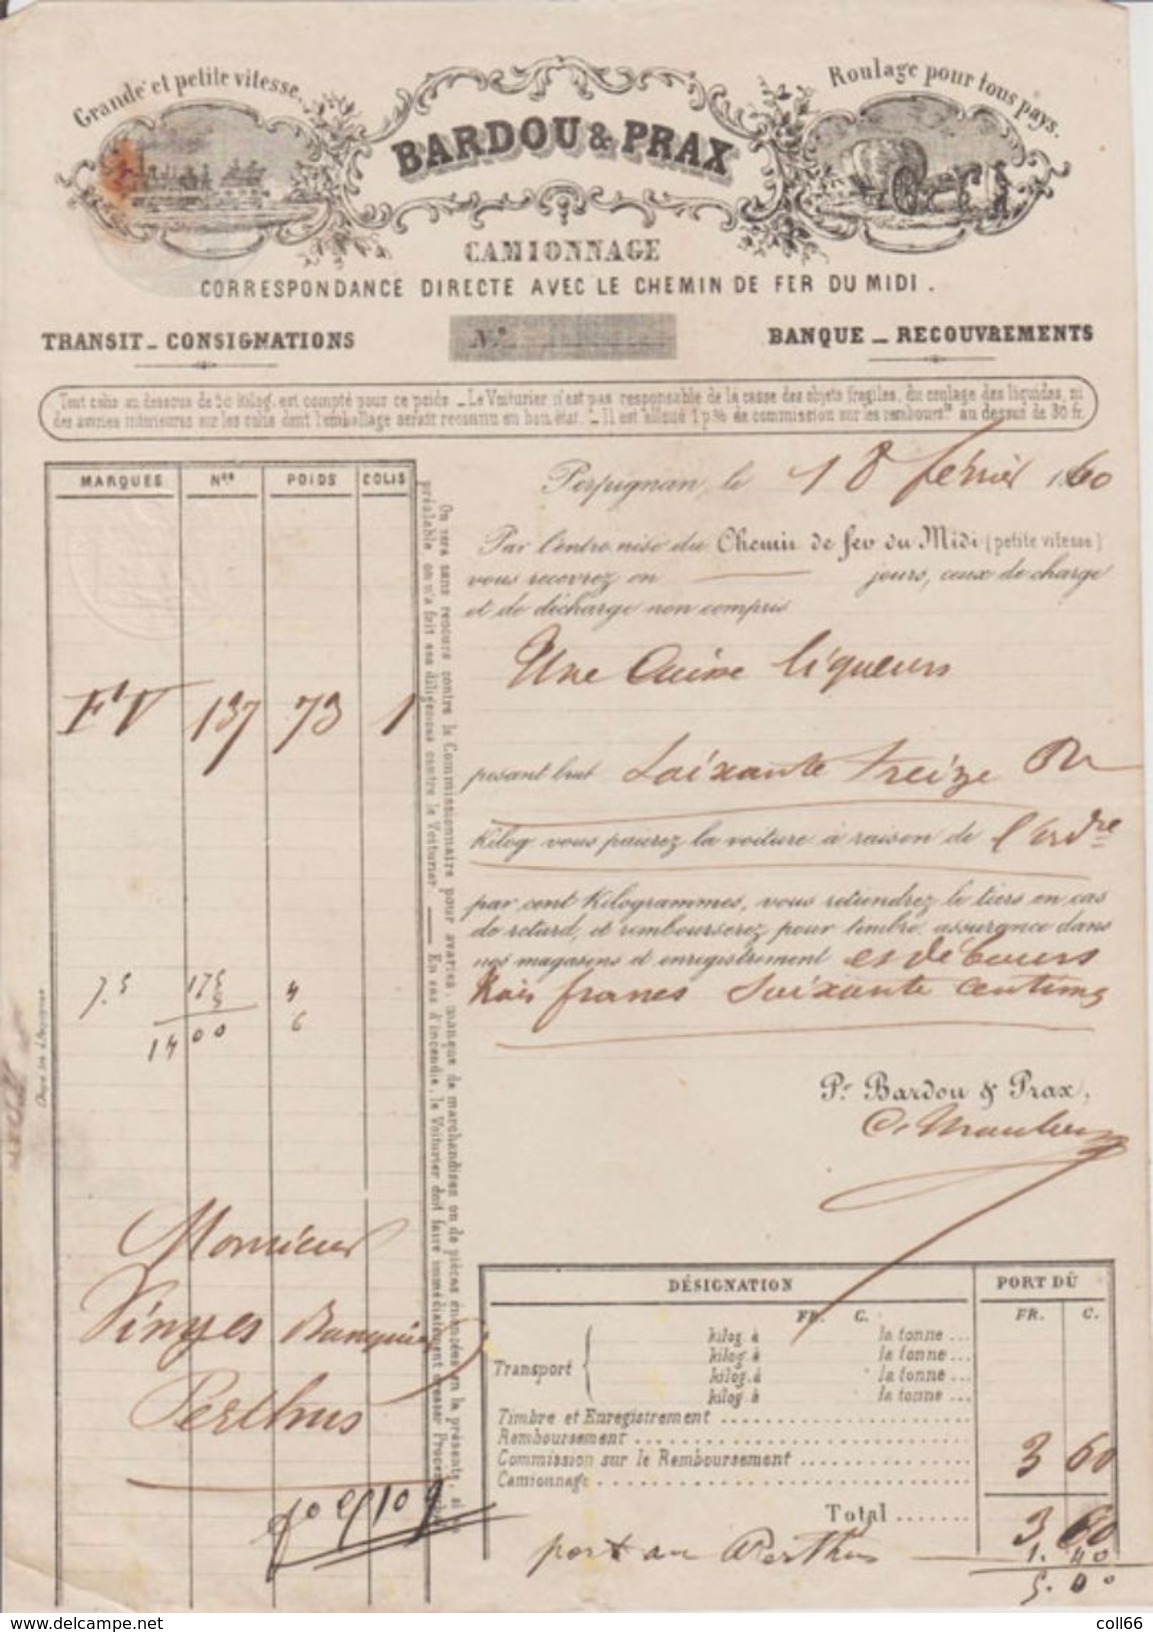 Grande et petite vitesse.
Roulage pour tous pays.
BARDOU & PRAX
CAMIONNAGE
CORRESPONDANCE DIRECTE AVEC LE CHEMIN DE FER DU MIDI.
TRANSIT _ CONSIGNATIONS
N°
BANQUE _ RECOUVREMENTS
Tout colis au dessous de 50 kilog. est compté pour ce poids _ Le Voiturier n'est pas responsable de la casse des objets fragiles, du coulage des liquides, ni
des avaries intérieures sur les colis dont l'emballage serait reconnu en bon état. _ Il est alloué 1 p% de commission sur les rembours.ts au dessus de 30 fr.
MARQUES Nos POIDS COLIS
FV 137 73 1
7.5 175 4
6
1400
On sera sans recours contre le Commissionnaire pour avaries, manque de marchandises ou de pièces énoncées en la présente, si au
préalable on n'a fait ses diligences contre le Voiturier. — En cas d'incendie, le Voiturier doit faire immédiatement dresser Procès
Perpignan, le 18 février 1860
Par l'entremise du Chemin de fer du Midi (petite vitesse)
vous recevrez en — jours, ceux de charge
et de décharge non compris
Une Caisse liqueurs
pesant brut Soixante treize
Kilog vous paierez la voiture à raison de l'ordre
par cent Kilogrammes, vous retiendrez le tiers en cas
de retard, et rembourserez pour timbre, assurance dans
nos magasins et enregistrement et débours
trois francs Soixante centimes
Pr. Bardou & Prax,
Monsieur
Vinyes Banquier
Perthus
DÉSIGNATION PORT DÛ
FR. C. FR. C.
Transport
kilog. à la tonne ...
kilog. à la tonne ...
kilog. à la tonne ...
kilog. à la tonne ...
Timbre et Enregistrement
Remboursement
Commission sur le Remboursement 3 60
Camionnage
Total 3 60
port au Perthus 1. 40
5. 00
www.delcampe.net
coll66